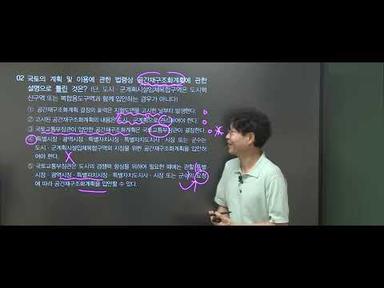 02 국토의 계획 및 이용에 관한 법령상 공간재구조화계획에 관한
설명으로 틀린 것은? (단, 도시 · 군계획시설입체복합구역은 도시혁
신구역 또는 복합용도구역과 함께 입안하는 경우가 아니다)
① 공간재구조화계획 결정의 효력은 지형도면을 고시한 날부터 발생한다.
② 고시된 공간재구조화계획의 내용은 도시 · 군계획으로 관리하여야 한다.
③ 국토교통부장관이 입안한 공간재구조화계획은 국토교통부장관이 결정한다.
④ 특별시장 · 광역시장 · 특별자치시장 · 특별자치도지사 · 시장 또는 군수는
도시 · 군계획시설입체복합구역의 지정을 위한 공간재구조화계획을 입안하
여야 한다.
⑤ 국토교통부장관은 도시의 경쟁력 향상을 위하여 필요한 때에는 관할 특별
시장 · 광역시장 · 특별자치시장 · 특별자치도지사 · 시장 또는 군수의 요청
에 따라 공간재구조화계획을 입안할 수 있다.